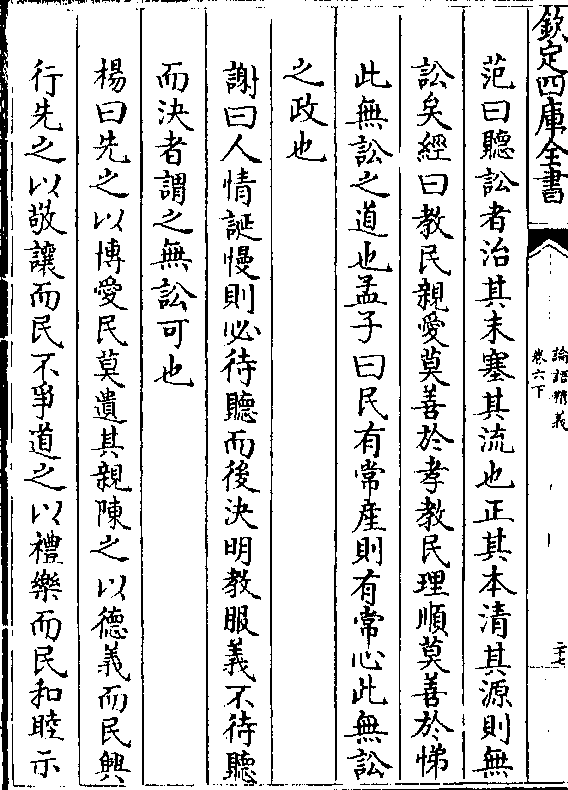 欽定四庫全書
論語精義
卷六下
二七
范曰聽訟者治其末塞其流也正其本清其源則無
訟矣經曰教民親愛莫善於孝教民理順莫善於悌
此無訟之道也孟子曰民有常產則有常心此無訟
之政也
謝曰人情誕慢則必待聽而後決明教服義不待聽
而決者謂之無訟可也
楊曰先之以博愛民莫遺其親陳之以德義而民興
行先之以敬讓而民不爭道之以禮樂而民和睦示